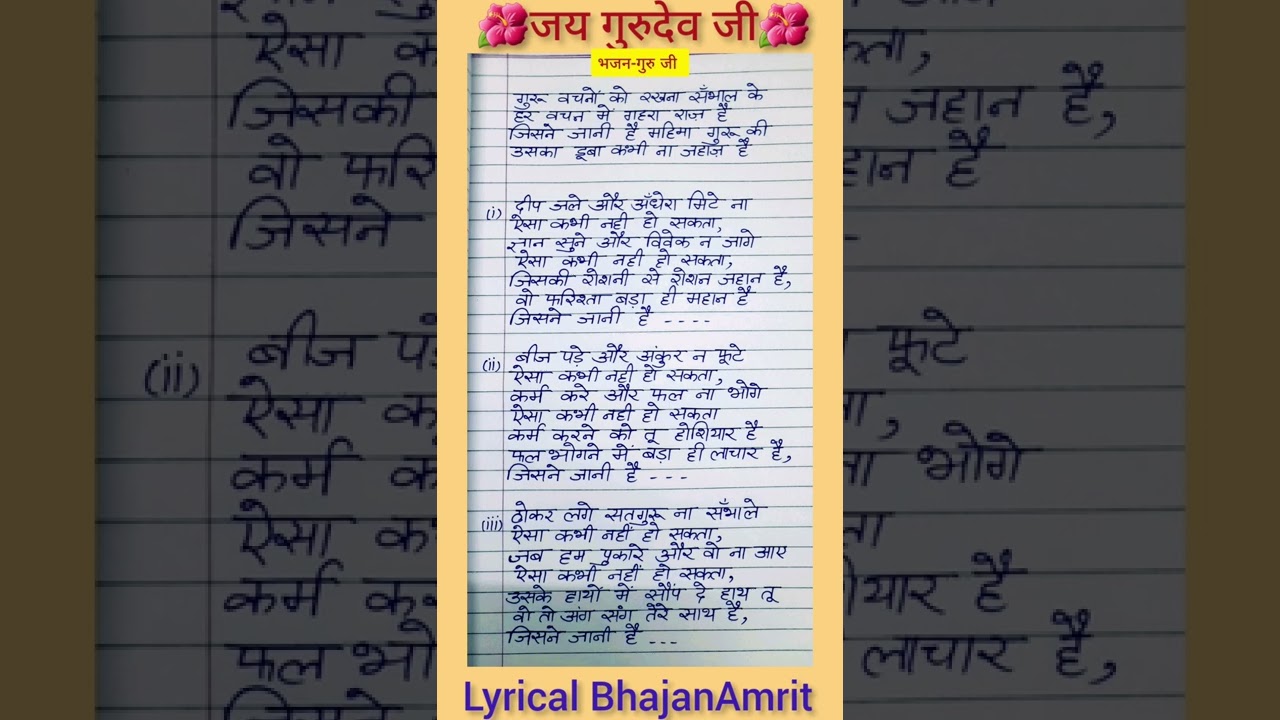 🌺जय गुरुदेव जी🌺
भजन-गुरु जी
गुरू वचनों को रखना सँभाल के
हर वचन में गहरा राज़ है
जिसने जानी है महिमा गुरू की
उसका डूबा कभी ना जहाज़ है
(i) दीप जले और अँधेरा मिटे ना
ऐसा कभी नही हो सकता,
ज्ञान सुने और विवेक न जागे
ऐसा कभी नही हो सकता,
जिसकी रोशनी से रोशन जहान है,
वो फरिश्ता बड़ा ही महान है
जिसने जानी है ----
(ii) बीज पड़े और अंकुर न फूटे
ऐसा कभी नही हो सकता,
कर्म करे और फल ना भोगे
ऐसा कभी नही हो सकता
कर्म करने को तू होशियार है
फल भोगने में बड़ा ही लाचार है,
जिसने जानी है ---
(iii) ठोकर लगे सतगुरू ना सँभाले
ऐसा कभी नहीं हो सकता,
जब हम पुकारे और वो ना आए
ऐसा कभी नहीं हो सकता,
उसके हाथों में सौंप दे हाथ तू
वो तो अंग संग तेरे साथ है,
जिसने जानी है ---
Lyrical BhajanAmrit